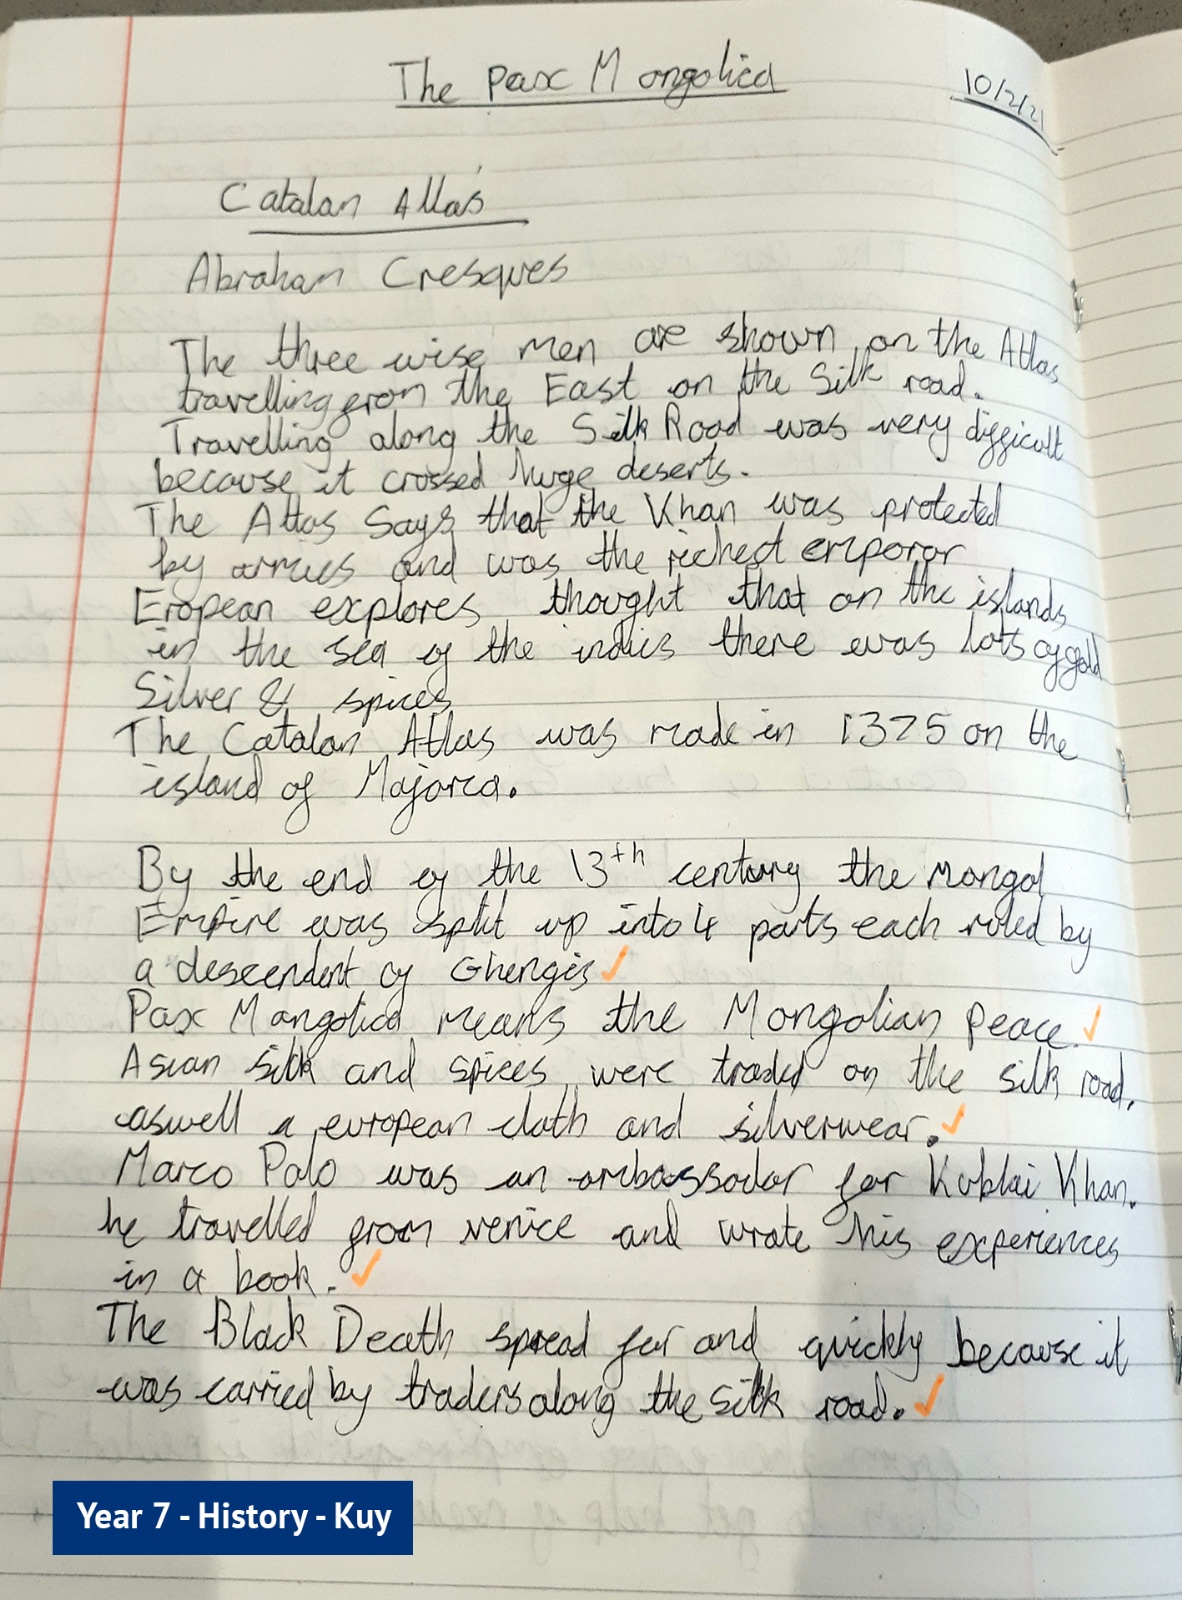 The Pax Mongolica
10/2/21
Catalan Atlas
Abraham Cresques
The three wise men are shown on the Atlas
travelling from the East on the Silk road.
Travelling along the Silk Road was very difficult
because it crossed huge deserts.
The Atlas Says that the Khan was protected
by armies and was the richest emporor
Eropean explores thought that on the islands
in the sea of the indies there was lots of gold
Silver & spices
The Catalan Atlas was made in 1375 on the
island of Majorca.
By the end of the 13th century the Mongol
Empire was split up into 4 parts each ruled by
a descendent of Ghengis
Pax Mangolica means the Mongolian Peace.
Asian silk and spices were traded on the silk road.
aswell a european cloth and silverwear.
Marco Polo was an ambassador for Kublai Khan.
he travelled from venice and wrote his experiences
in a book.
The Black Death spread far and quickly because it
was carried by traders along the silk road.
Year 7 - History - Kuy